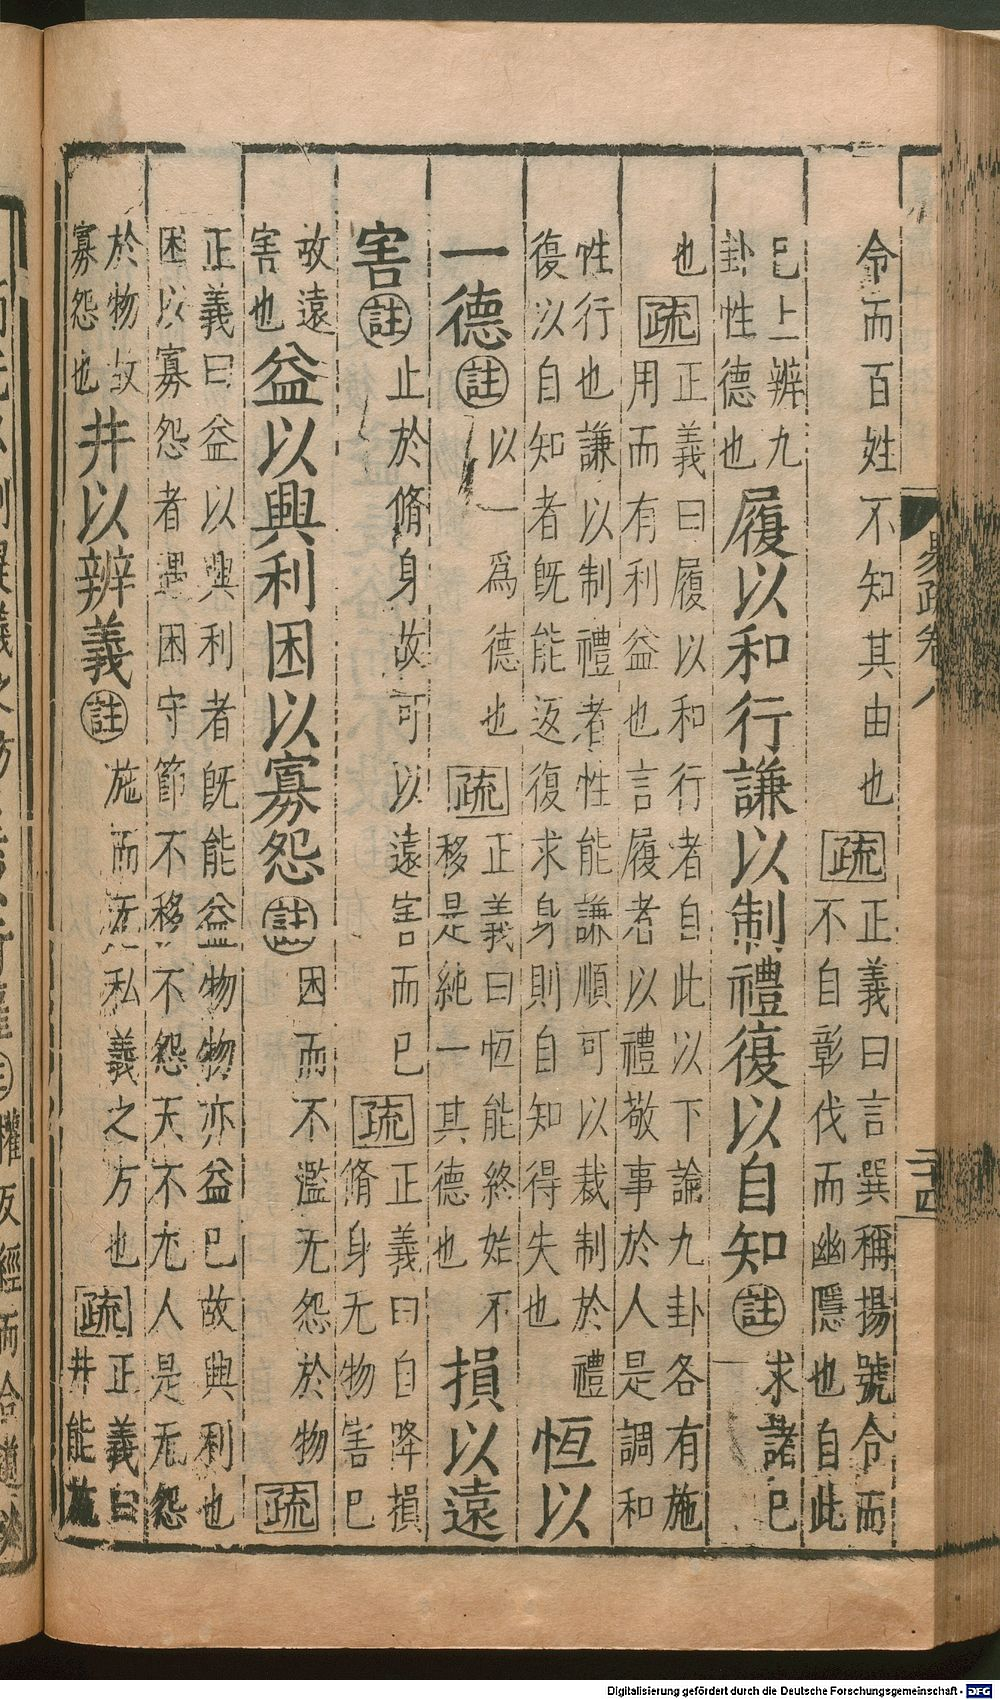 易疏卷八
二十四
令而百姓不知其由也疏正義曰言巽稱揚號令而不自彰伐而幽隱也自此
已上辨九卦性德也履以和行謙以制禮復以自知註求諸已
也疏正義曰履以和行者自此以下論九卦各有施用而有利益也言履者以禮敬事於人是調和
性行也謙以制禮者性能謙順可以裁制於禮復以自知者既能返復求身則自知得失也恒以
一德註以一爲德也疏正義曰恒能終始不移是純一其德也損以遠
害註止於脩身故可以遠害而已疏正義曰自降損脩身无物害已
故遠害也益以興利困以寡怨註困而不濫无怨於物疏
正義曰益以興利者既能益物物亦益已故興利也困以寡怨者遇困守節不移不怨天不尤人是无怨
於物故寡怨也井以辨義註施而无私義之方也疏正義曰井能施
權反經而合道
Digitalisierung gefördert durch die Deutsche Forschungsgemeinschaft - DFG